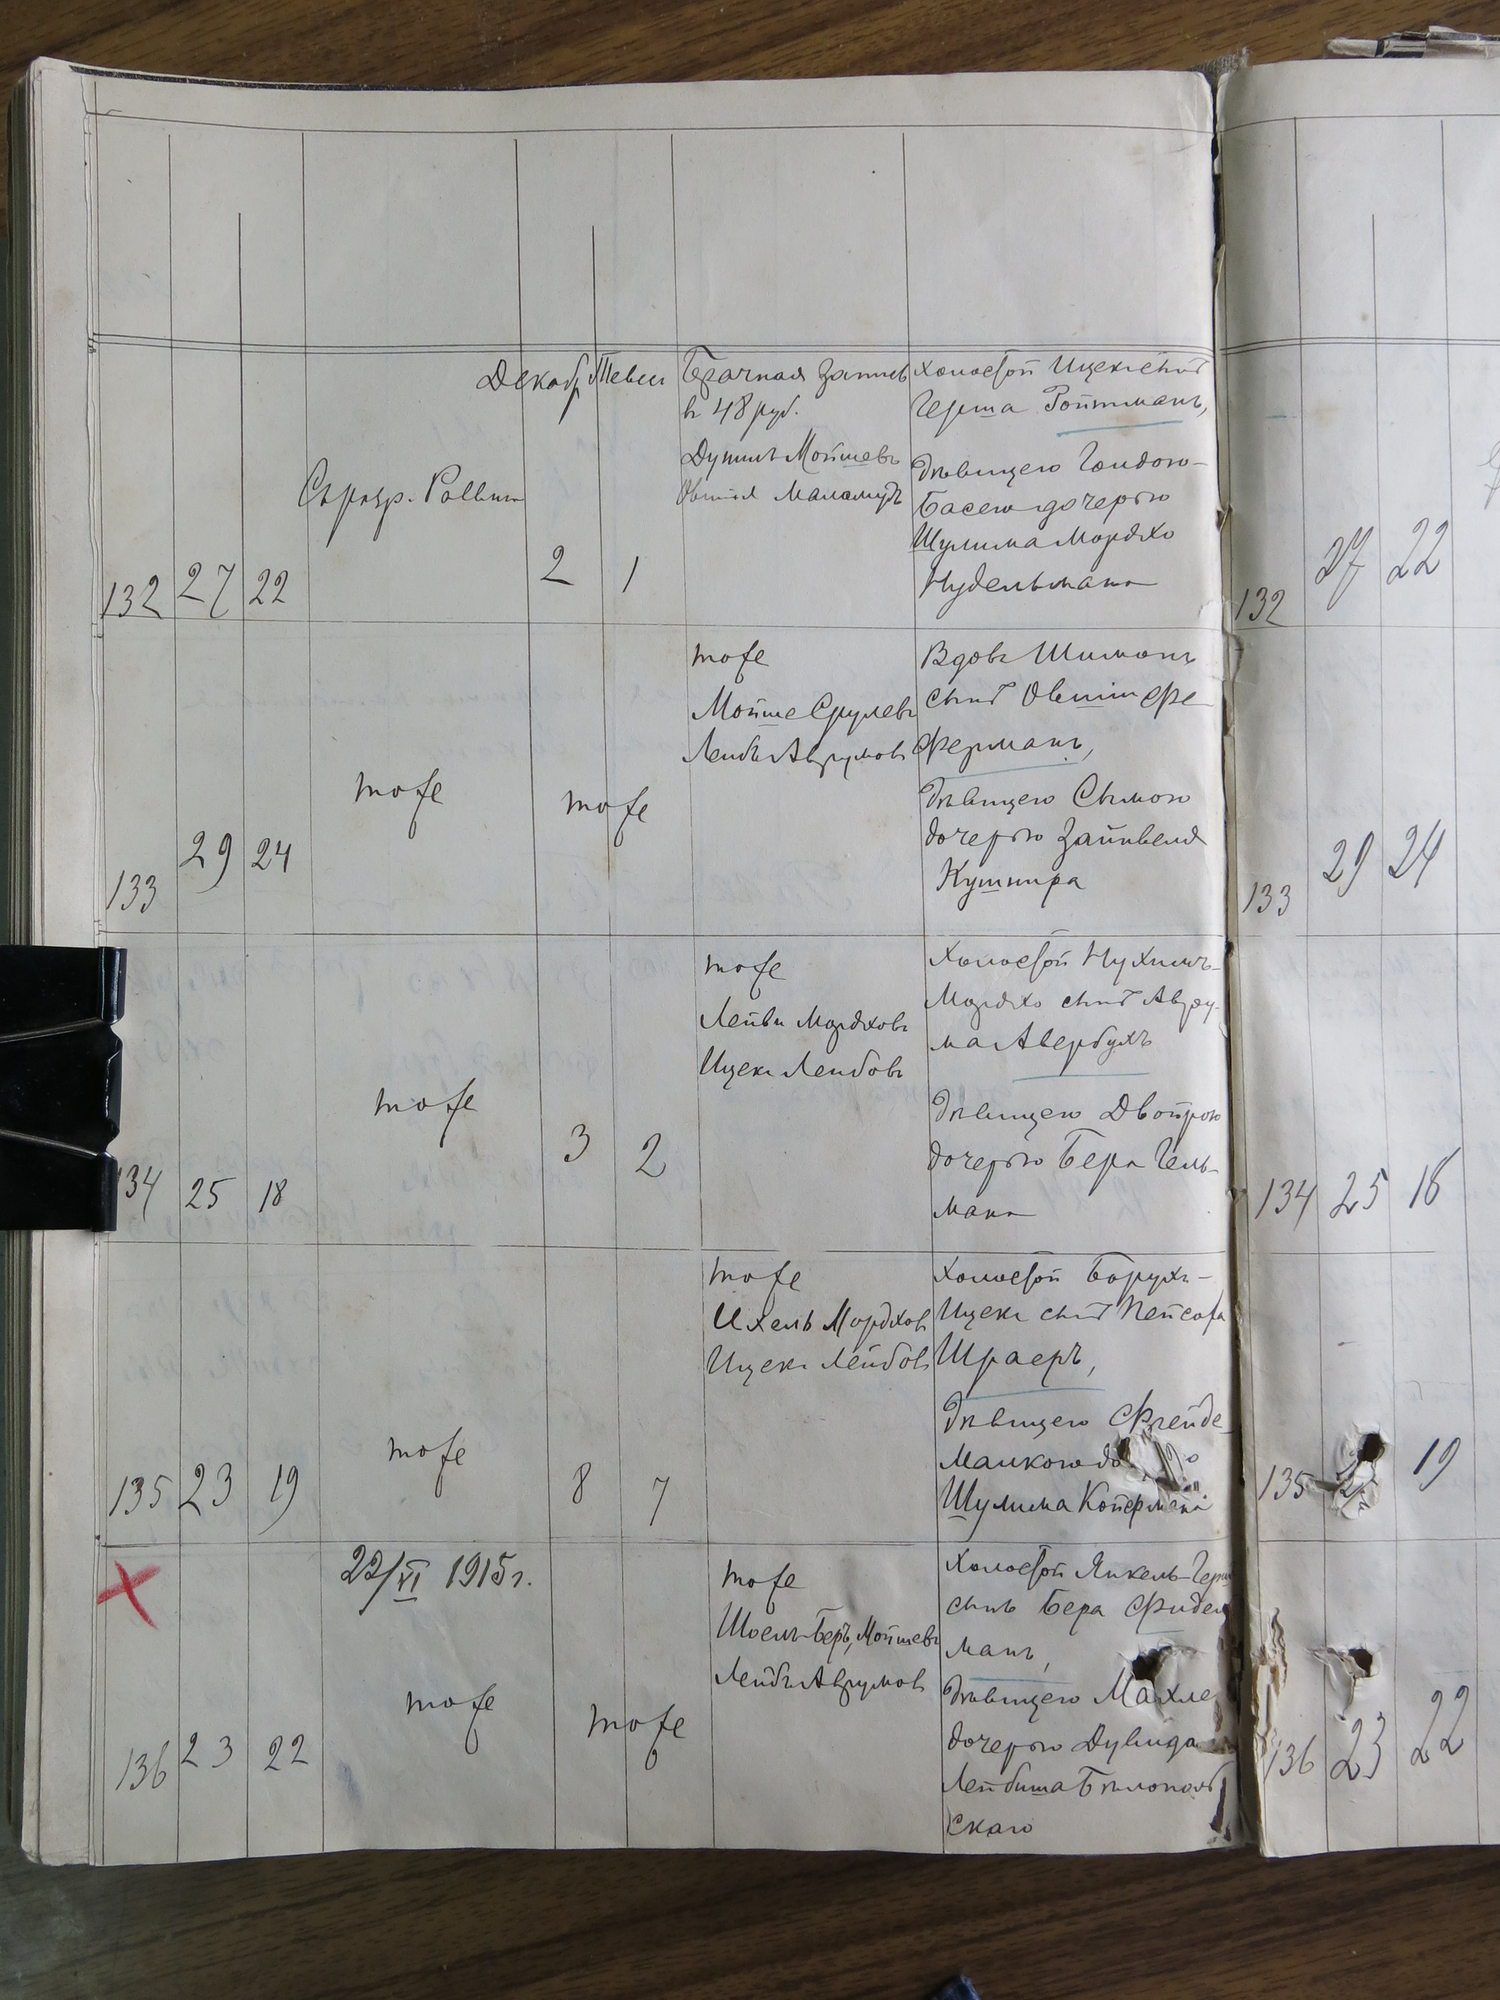 Декабр Тевес
132 27 22
2 1
Брачная запись
в 48 руб.
Холостой Ицек сынъ
Герша Ройтманъ,
дѣвицею Гендою-
Басею дочерью
Шулима Мордхо
Нудельмана
133 29 24
тоже
тоже
тоже
Мойше Срулевъ
Лейбъ Аврумовъ
Вдовъ Шимонъ
сынъ Овшия Фе-
Ферманъ,
дѣвицею Симою
дочерью Зайнвеля
Кушнира
134 25 18
тоже
3 2
тоже
Лейви Мордховъ
Ицекъ Лейбовъ
Холостой Нухимъ-
Мордхо сынъ Авру-
ма Авербухъ
дѣвицею Двойрою
дочерью Бера Гель-
мана
135 23 19
тоже
8 7
тоже
Ихель Мордховъ
Ицекъ Лейбовъ
Холостой Борухъ-
Ицекъ сынъ Пейсаха
Шраеръ,
дѣвицею Фрейде-
Малкою
Шулима Койфмана
136 23 22
22/VI 1915 г.
тоже
тоже
тоже
Шоелъ-Беръ, Мойшевъ
Лейбъ Аврумовъ
Холостой Янкель-Герш
сынъ Бера Фидель
манъ,
дѣвицею Махле
дочерью Дувида
Лейбиша Бѣлополь
скаго
132 27 22
133 29 24
134 25 18
135 19
136 23 22